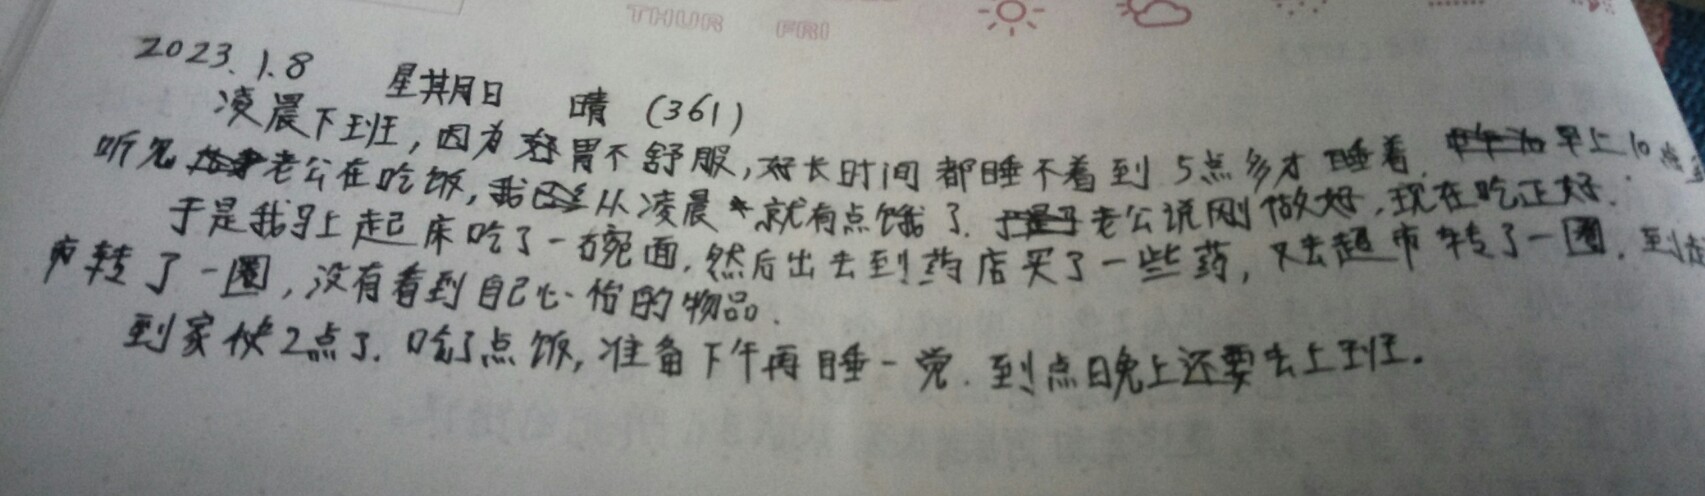 THUR FRI
2023.1.8 星期日 晴 (361)
凌晨下班，因为胃不舒服，好长时间都睡不着到5点多才睡着. 早上10点
听见老公在吃饭，我从凌晨就有点饿了. 老公说刚做好，现在吃正好.
于是我马上起床吃了一碗面，然后出去到药店买了一些药，又去超市转了一圈. 到
市转了一圈，没有看到自己心怡的物品.
到家快2点了. 吃了点饭，准备下午再睡一觉. 到点晚上还要去上班.